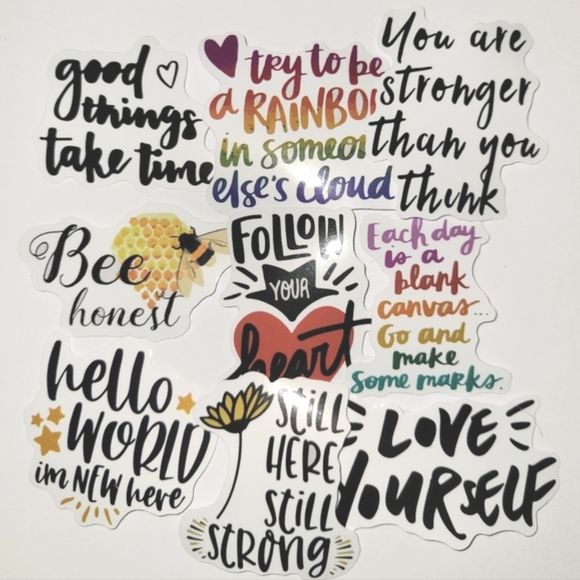 good
things
take time
try to be
a RAINBO
in someo
else's cloud
You are
stronger
than you
think
Bee
honest
FOLLOW
YOUR
heart
Each day
is a
blank
canvas...
Go and
make
some marks.
hello
WORLD
im NEW here
STILL
HERE
STILL
STRONG
LOVE
YOURSELF